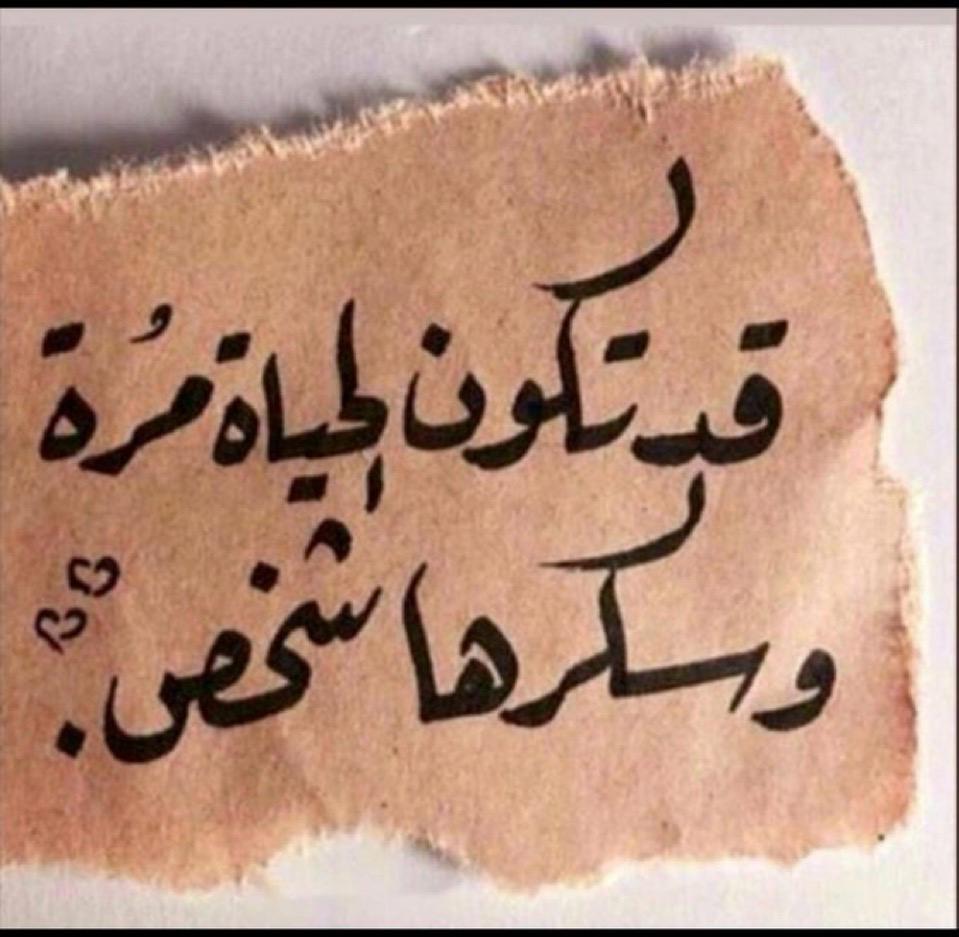 قد تكون الحياة مُرة
وسكرها شخص.